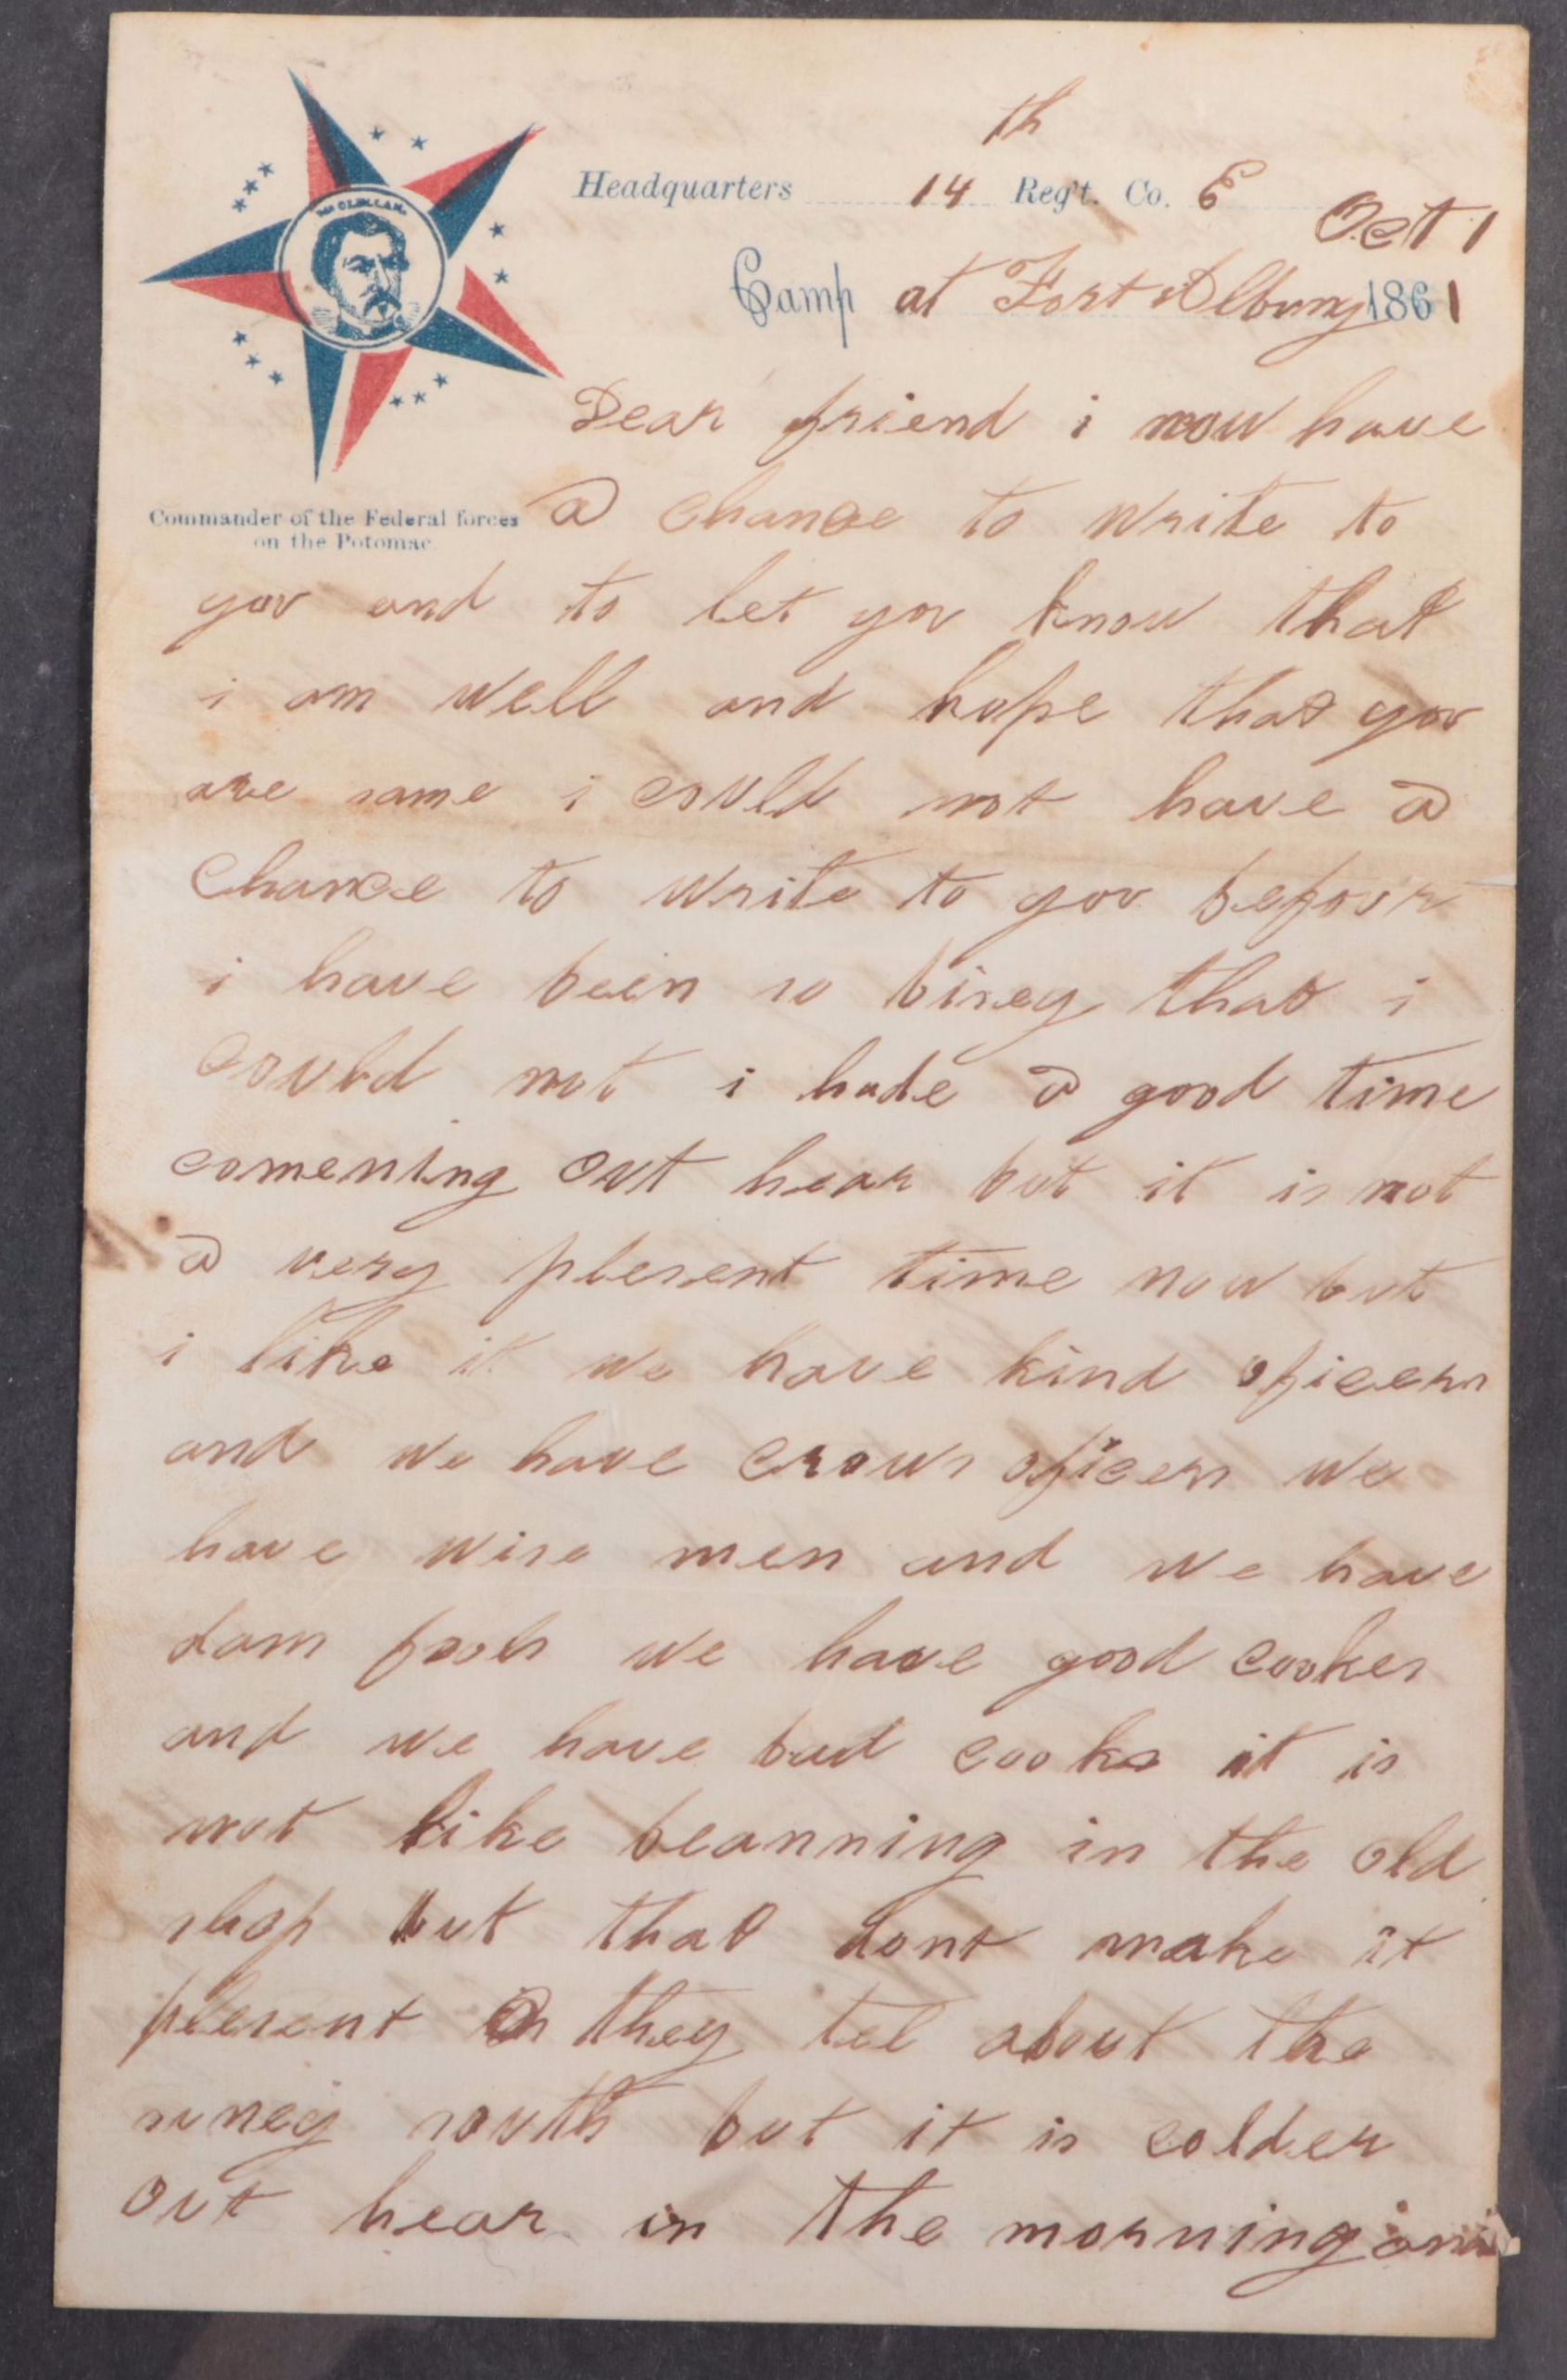 th
Headquarters 14 Reg't. Co. E
Oct 1
Camp at Fort Albany 1861
McCLELLAN.
Commander of the Federal forces
on the Potomac.
Dear friend i now have
a chance to write to
you and to let you know that
i am well and hope that you
are same i could not have a
chance to write to you befour
i have been so bisey that i
could not i hade a good time
comening out hear but it is not
a very plesent time now but
i like it we have kind oficers
and we have crows oficers we
have wise men and we have
dam fools we have good cookes
and we have bad cooks it is
not like beanning in the old
shop but that dont make it
plesent they tel about the
suney south but it is colder
out hear in the morning